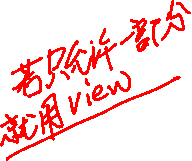 若只允许一部分
就用view